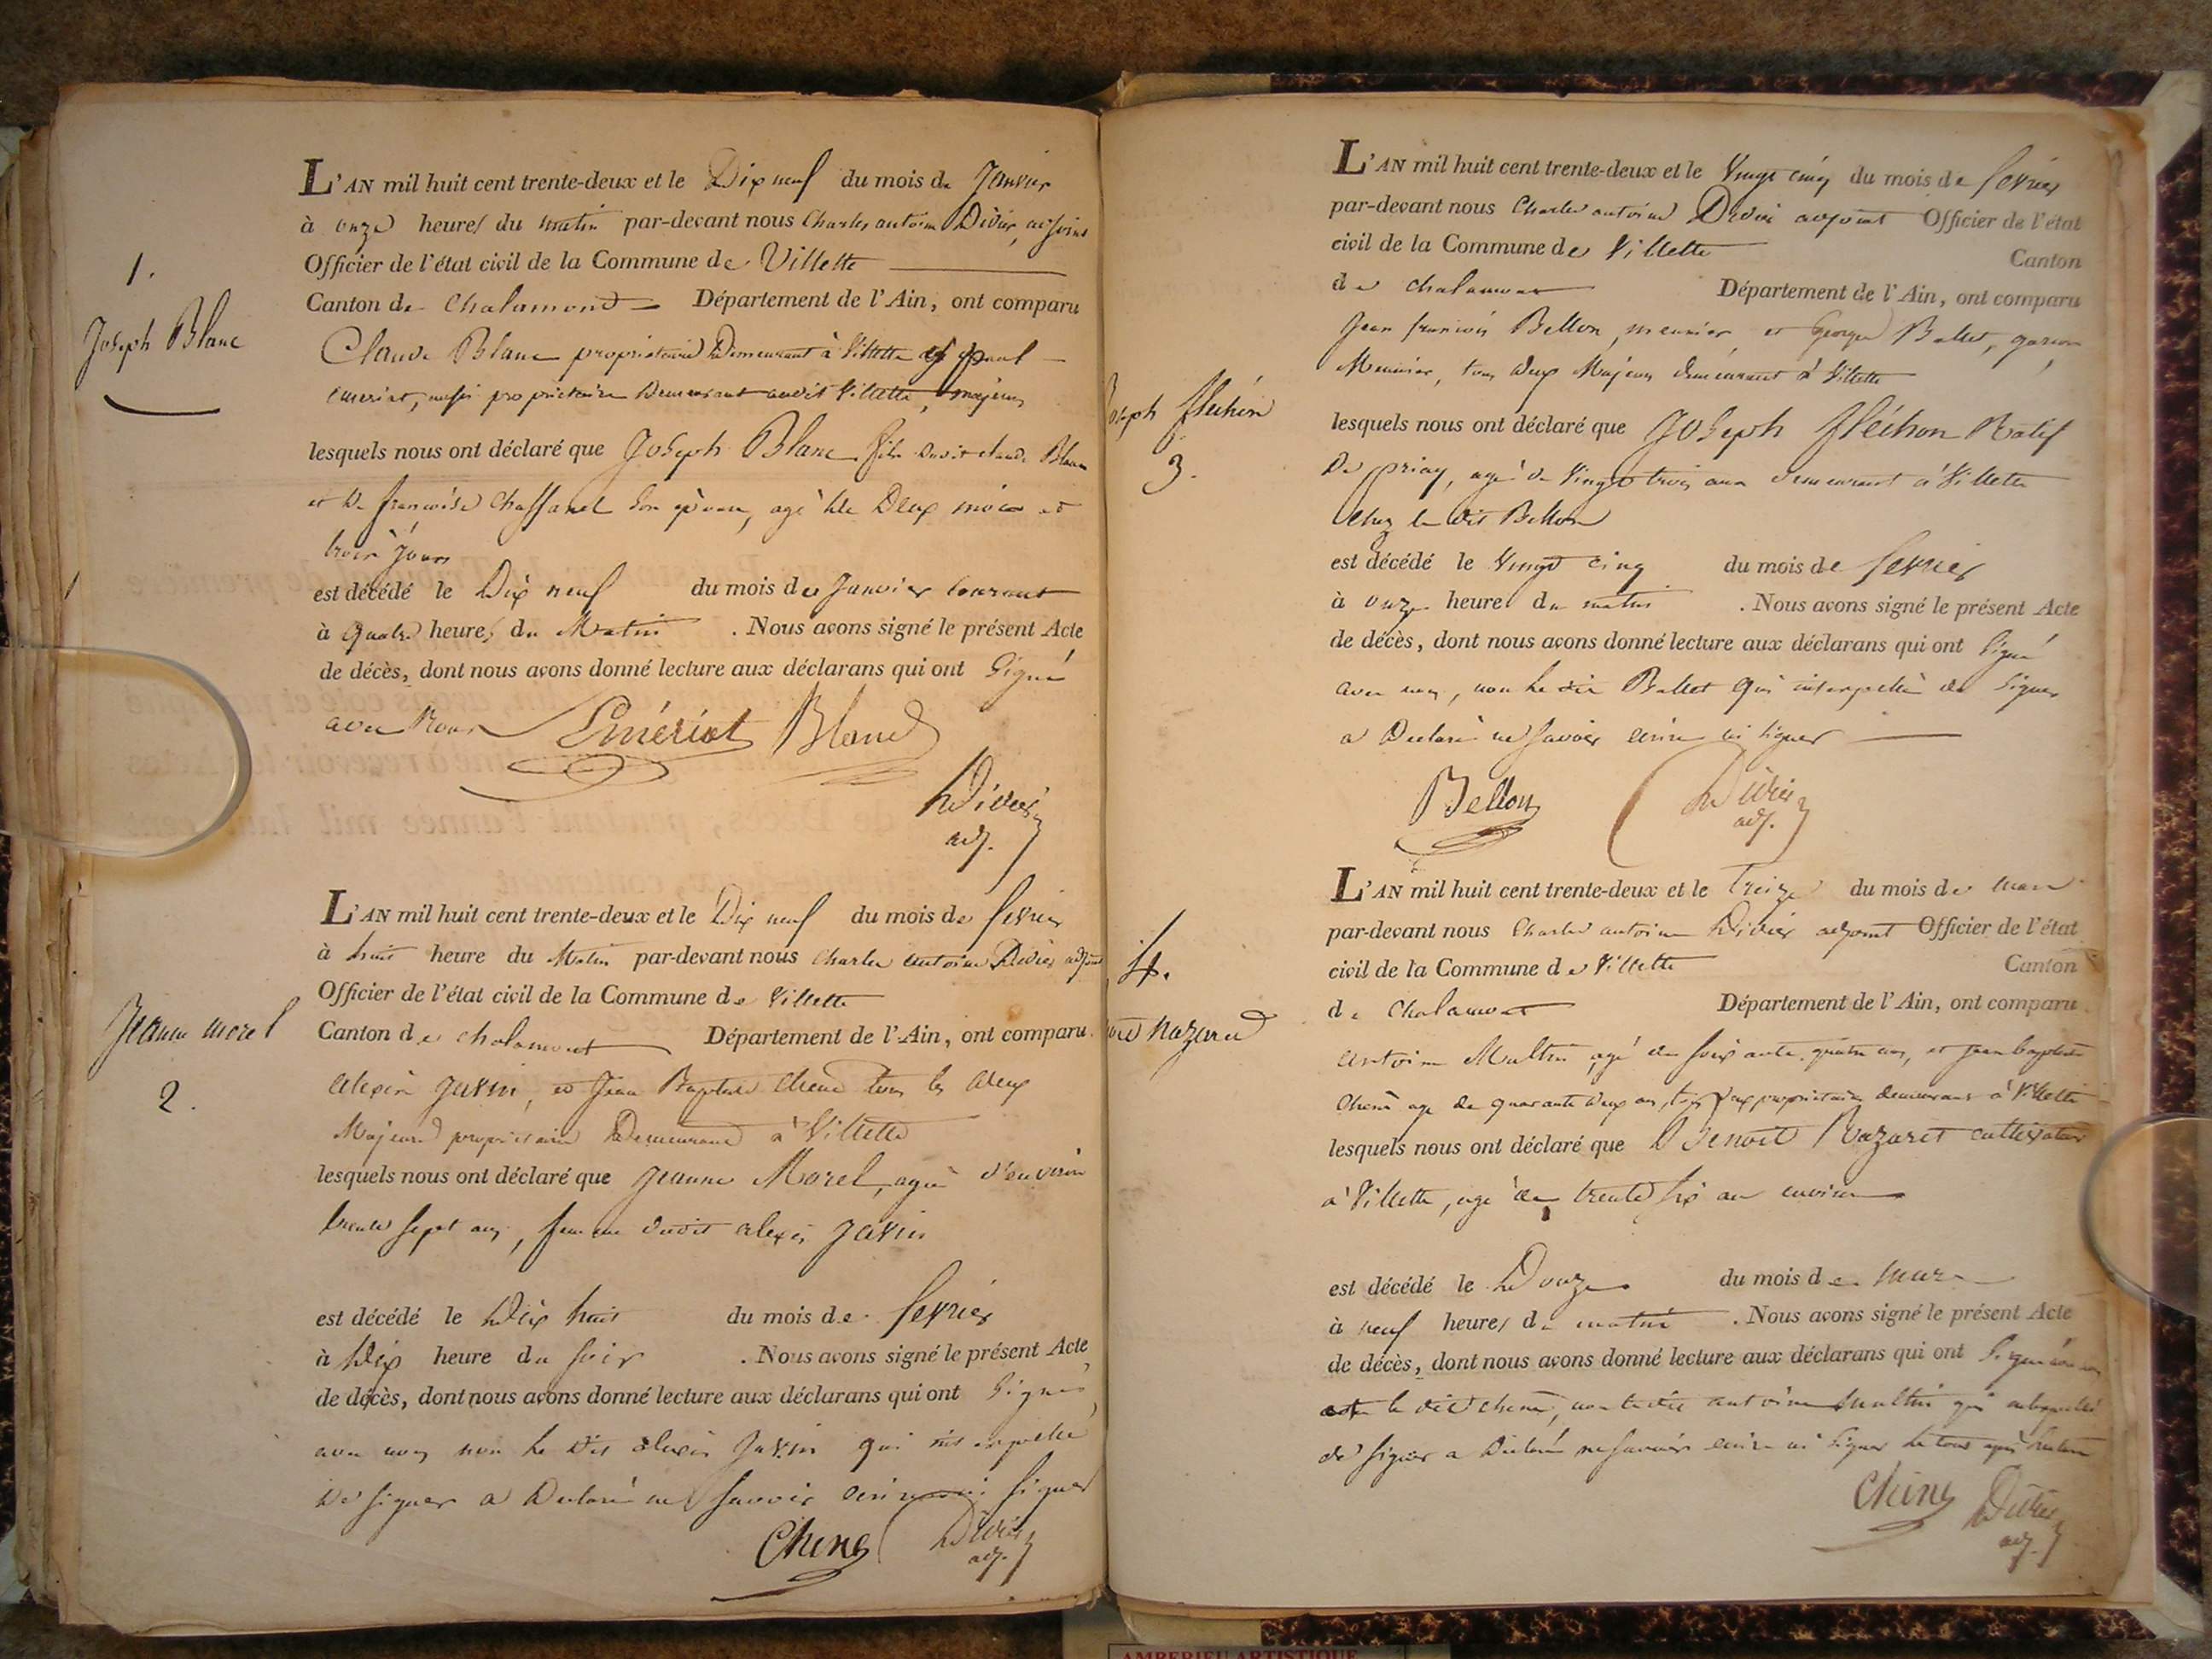 1.
Joseph Blanc
L'AN mil huit cent trente-deux et le Dix neuf du mois de Janvier
à onze heures du matin par-devant nous Charles antoine Didier, adjoint
Officier de l'état civil de la Commune de Villette
Canton de Chalamont Département de l'Ain, ont comparu
Claude Blanc propriétaire Demeurant à Villette et
emeriat, aussi propriétaire Demeurant audit Villette, majeurs
lesquels nous ont déclaré que Joseph Blanc fils dudit claude Blanc
et De françoise Chassanel Son épouse, agé de Deux mois et
trois jours
est décédé le Dix neuf du mois de Janvier Courant
à quatre heures du Matin . Nous avons signé le présent Acte
de décès, dont nous avons donné lecture aux déclarans qui ont Signé
avec Nous Emériat Blanc
Didier
adj.
Jeanne morel
2.
L'AN mil huit cent trente-deux et le Dix neuf du mois de fevrier
à huit heure du Matin par-devant nous Charles Antoine Didier adjoint
Officier de l'état civil de la Commune de Villette
Canton de chalamont Département de l'Ain, ont comparu
alexis Javin, et Jean Baptiste Chene tous les deux
Majeurs propriétaires Demeurant à Villette
lesquels nous ont déclaré que Jeanne Morel, agée d'environ
trente sept ans, femme dudit alexis Javin
est décédé le Dix huit du mois de fevrier
à Dix heure du soir . Nous avons signé le présent Acte
de décès, dont nous avons donné lecture aux déclarans qui ont Signé
avec nous non le dit alexis Javin qui interpellé
De signer a Declaré ne savoir ecrire ni signer
Chene Didier
adj.
Joseph fléchon
3.
L'AN mil huit cent trente-deux et le Vingt cinq du mois de fevrier
par-devant nous Charles antoine Didier adjoint Officier de l'état
civil de la Commune de Villette Canton
de chalamont Département de l'Ain, ont comparu
Jean françois Bellon, meunier et George Ballet, garçon
Meunier, tous deux Majeurs demeurant à Villette
lesquels nous ont déclaré que Joseph fléchon Natif
De priay, agé de Vingt trois ans demeurant à Villette
Chez le dit Bellon
est décédé le Vingt cinq du mois de fevrier
à onze heures du matin . Nous avons signé le présent Acte
de décès, dont nous avons donné lecture aux déclarans qui ont Signé
avec nous, non le dit Ballet qui interpellé de signer
a Declaré ne savoir ecrire ni signer
Bellon Didier
adj.
4.
Nazaret
L'AN mil huit cent trente-deux et le Treize du mois de mars
par-devant nous Charles antoine Didier adjoint Officier de l'état
civil de la Commune de Villette Canton
de Chalamont Département de l'Ain, ont comparu
antoine Multin, agé de soixante quatre ans, et jean baptiste
Chene age de quarante deux ans, tous deux propriétaires demeurant à Villette
lesquels nous ont déclaré que Benoit Nazaret cultivateur
à Villette, agé de trente six ans environ
est décédé le Douze du mois de Mars
à neuf heures du matin . Nous avons signé le présent Acte
de décès, dont nous avons donné lecture aux déclarans qui ont Signé
le dit chene, non le dit antoine Multin qui interpellé
de signer a Declaré ne savoir ecrire ni signer le tout après lecture
Chene Didier
adj.
AMBERIEU ARTISTIQUE